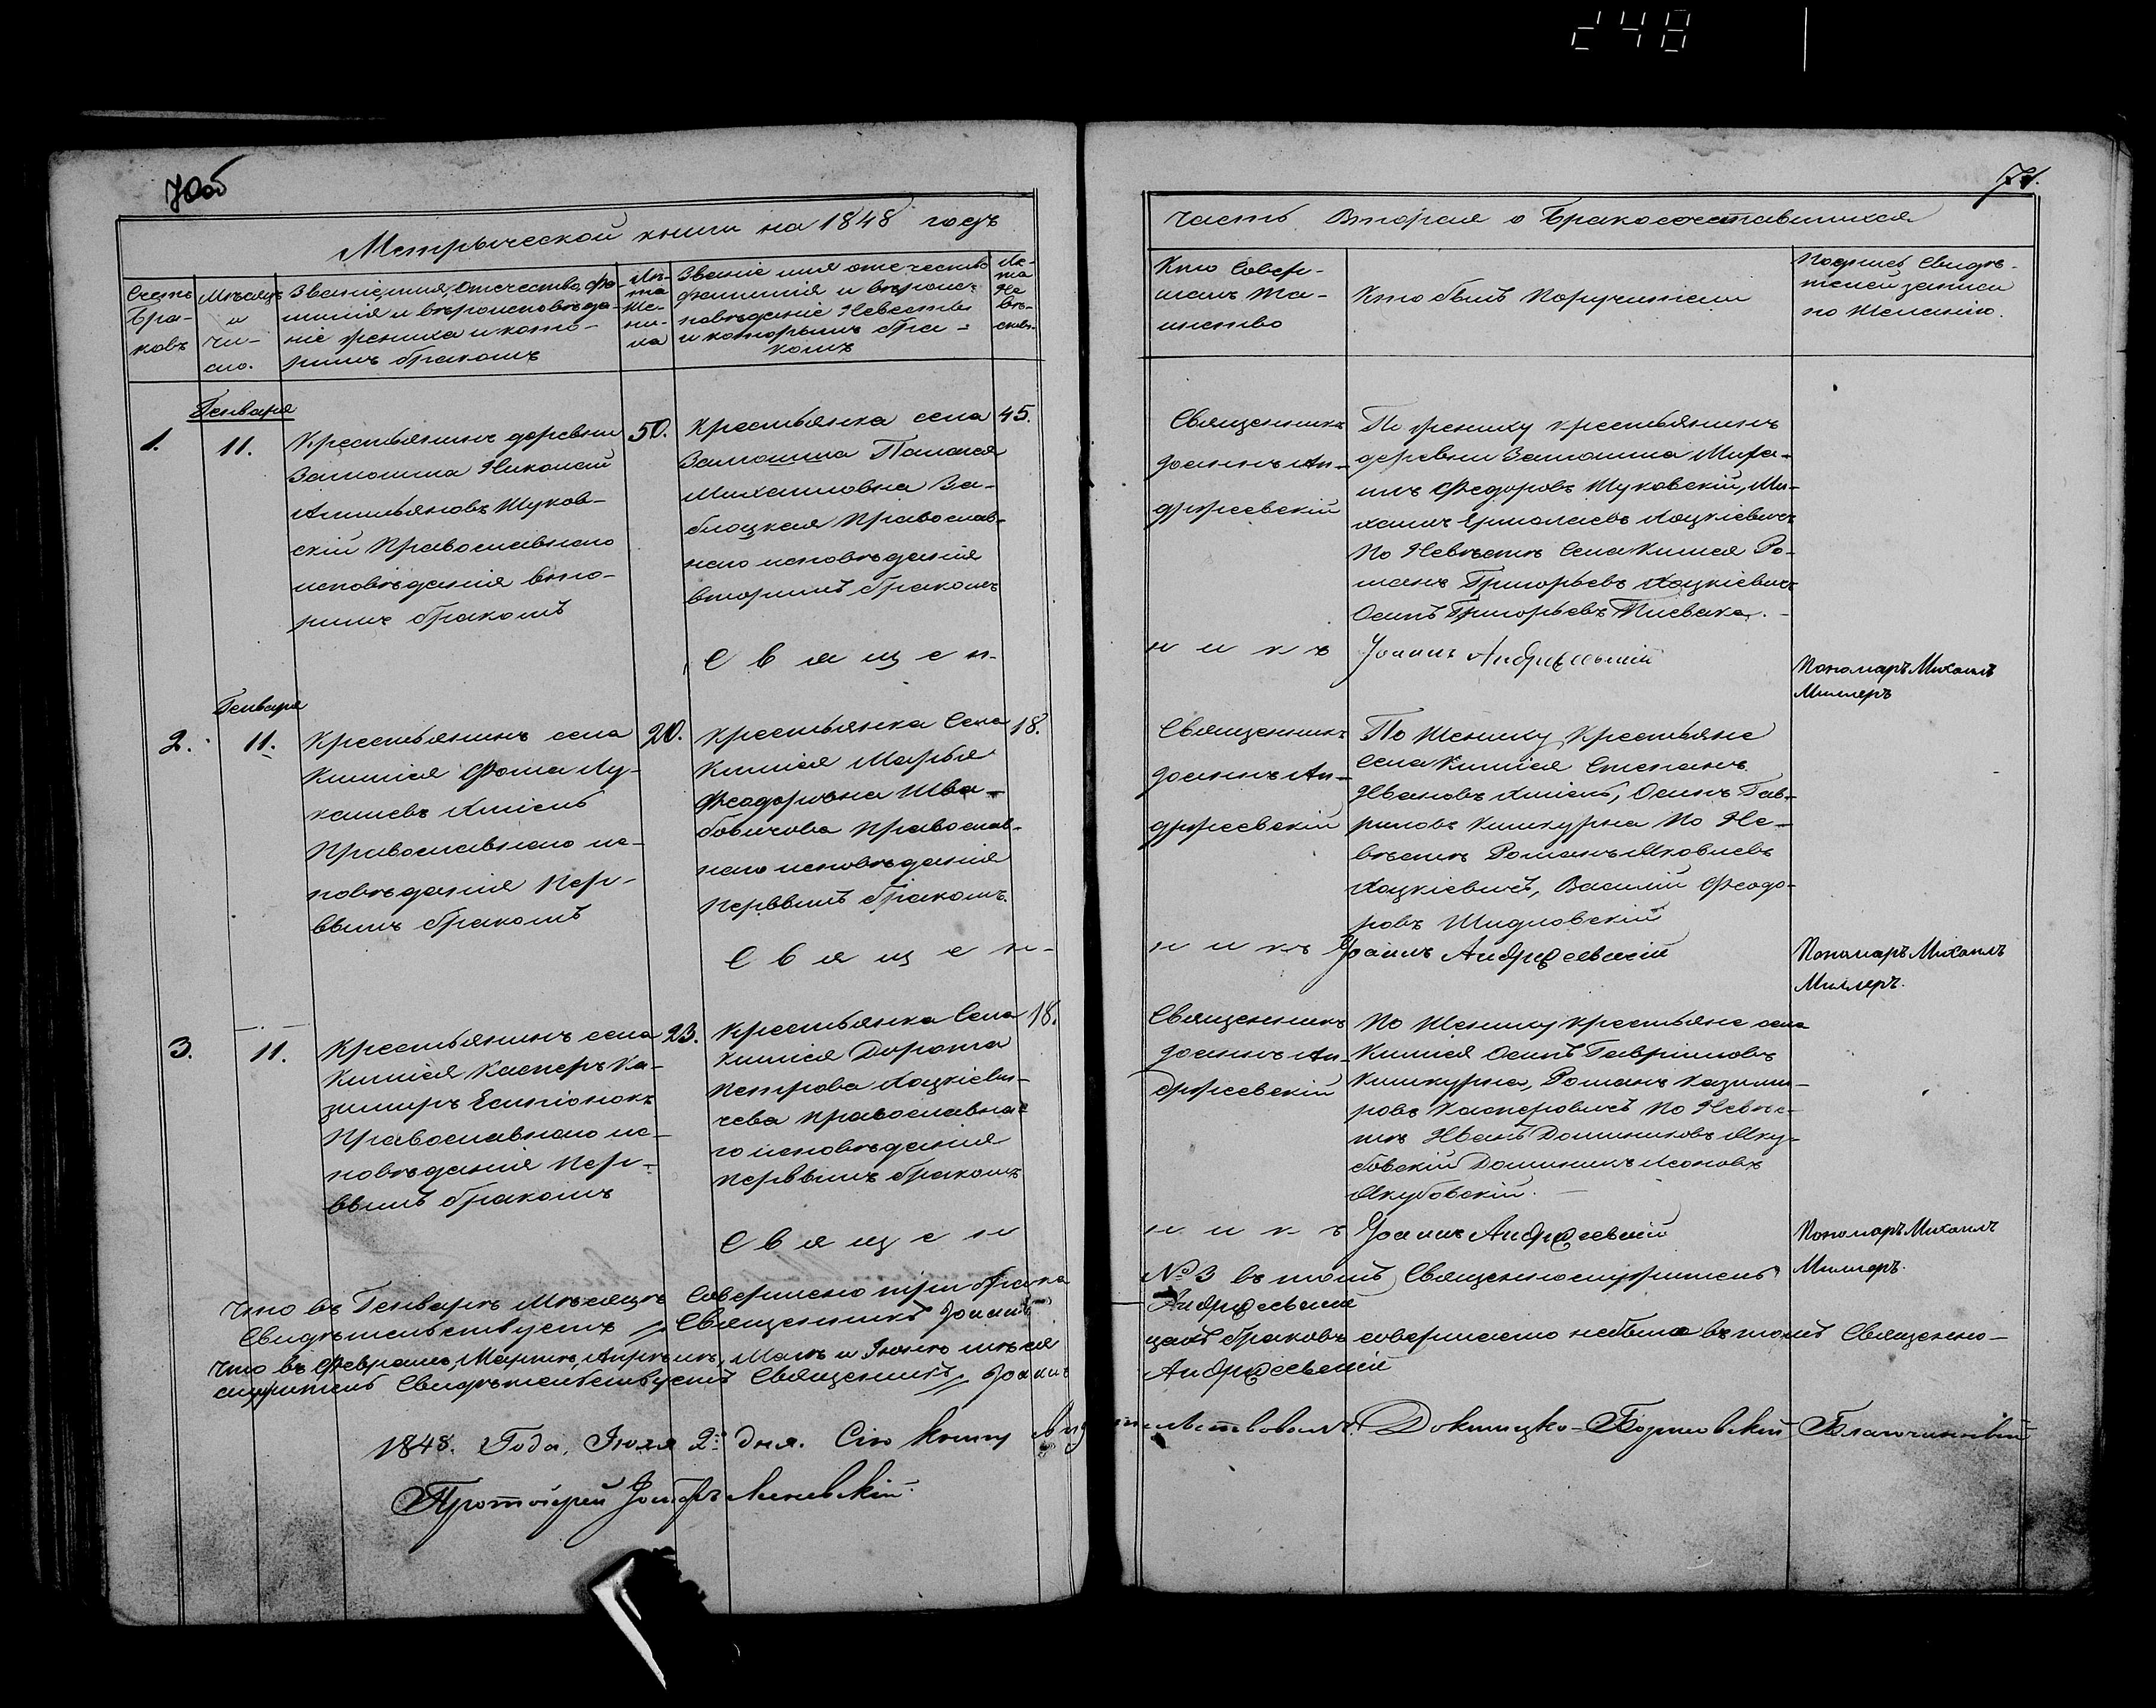 248
70об
71.
Метрической книги на 1848 годъ
часть Вторая о Бракосочетавшихся
Счетъ
Бра-
ковъ
Мѣсяцъ
и
чи-
сло.
Званіе, имя, отечество, фа-
милія и вѣроисповѣда-
ніе жениха и кото-
рымъ бракомъ
Лѣ-
та
Же-
ни-
ха
Званіе имя отечество
фамилія и вѣроис-
повѣданіе Невесты
и которымъ бра-
комъ
Лѣ-
та
Не
вѣ-
сты.
Кто Совер-
шалъ Та-
инство
Кто былъ Поручители
Подпись Свидѣ-
телей записи
по Желанію.
Генваря
1.
11.
Крестьянинъ деревни
Замошша Николай
Жуков-
скій Православнаго
исповѣданія вто-
рымъ бракомъ
50.
Крестьянка села
Замошша Палагея
Михайловна За-
блоцкая Православ-
наго исповѣданія
вторымъ бракомъ
45.
Священникъ
Іоаннъ Ан-
држеевскій
По жениху крестьянинъ
деревни Замошша Миха-
илъ Федоровъ Жуковскій, Ми-
хаилъ Ермолаевъ Хацкіевичъ
По Невѣстѣ Села Килея Ро-
манъ Григорьевъ Хацкіевичъ
Осипъ Григорьевъ
С в я щ е н-
н и к ъ Іоаннъ Андржеевскій
Пономаръ Михаилъ
Миллеръ
Генваря
2.
11.
Крестьянинъ села
Фома Лу-
кашевъ
Православнаго ис-
повѣданія Пер-
вымъ бракомъ
20.
Крестьянка Села
Марья
Феодоровна
Православ-
наго исповѣданія
Первымъ бракомъ.
18.
Священникъ
Іоаннъ Ан-
држеевскій
По Жениху Крестьяне
села Степанъ
Ивановъ Осипъ Гав-
риловъ Кишкурна По Не-
вѣстѣ Романъ Яковлевъ
Хацкіевичъ, Василій Феодо-
ровъ Шидловскій
С в я щ е н-
н и к ъ Іоаннъ Андржеевскій
Пономаръ Михаилъ
Миллеръ.
3.
11.
Крестьянинъ села
Касперъ Ка-
зимиръ
Православнаго ис-
повѣданія Пер-
вымъ бракомъ
23.
Крестьянка Села
Дорота
Петрова Хацкіеви-
чева Православна-
го исповѣданія
первымъ бракомъ
18.
Священникъ
Іоаннъ Ан-
држеевскій
По Жениху крестьяне села
Осипъ Гавриловъ
Кишкурна, Романъ Казими-
ровъ Касперовичъ По Невѣс-
тѣ Иванъ Доминиковъ Яку-
бовскій Доминикъ Леоновъ
Якубовскій.
С в я щ е н
н и к ъ Іоаннъ Андржеевскій
Пономаръ Михаилъ
Миллеръ.
Что въ Генварѣ Мѣсяцѣ Совершено три брака №3 въ томъ Священнослужитель
Свидѣтельствуетъ Священникъ Іоаннъ Андржеевскій
Что въ Февралѣ, Мартѣ, Апрѣлѣ, Маѣ и Іюнѣ мѣся
цахъ браковъ совершаемо небыло въ томъ Священно-
служитель Свидѣтельствуетъ Священникъ Іоаннъ Андржеевскій
1848. Года, Іюля 2 дня. Сію книгу свидѣтельствовалъ Докшицко-Борисовскій Благочинный
Протоіерей Іосифъ